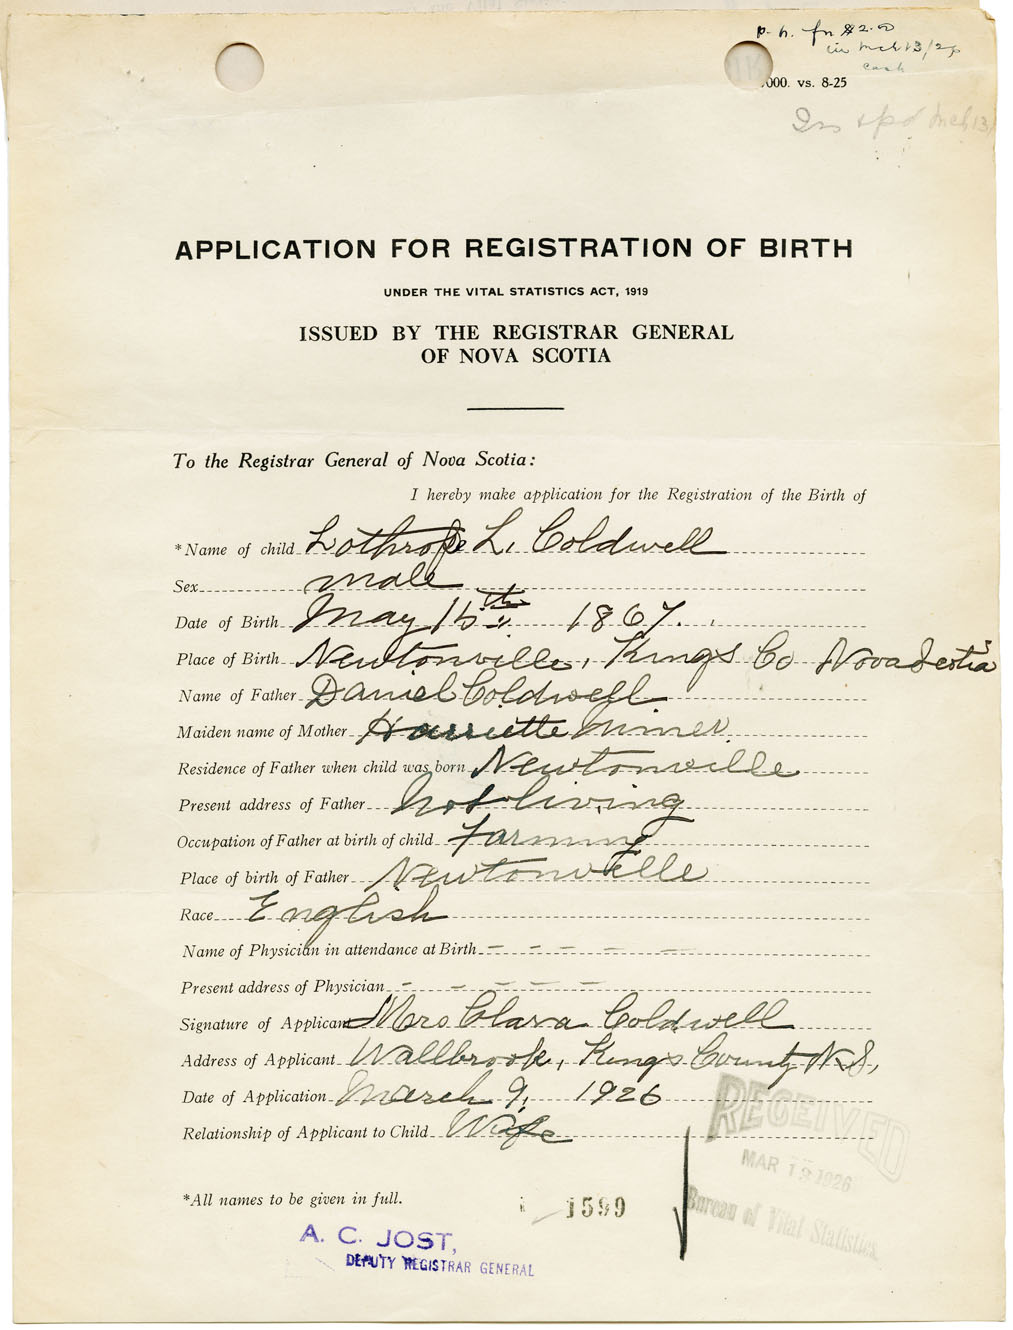 p. h. for $2.00
in Mch 13/26
cash
000. vs. 8-25
Mch 13/
APPLICATION FOR REGISTRATION OF BIRTH
UNDER THE VITAL STATISTICS ACT, 1919
ISSUED BY THE REGISTRAR GENERAL
OF NOVA SCOTIA
To the Registrar General of Nova Scotia:
I hereby make application for the Registration of the Birth of
*Name of child Lothrope L. Coldwell
Sex male
Date of Birth May 15th 1867.
Place of Birth Newtonville, Kings Co Nova Scotia
Name of Father Daniel Coldwell
Maiden name of Mother Harriette Miner
Residence of Father when child was born Newtonville
Present address of Father Not living
Occupation of Father at birth of child Farming
Place of birth of Father Newtonville
Race English
Name of Physician in attendance at Birth - - - - -
Present address of Physician - - - - -
Signature of Applicant Mrs Clara Coldwell
Address of Applicant Wallbrook, Kings County N.S,
Date of Application March 9, 1926
Relationship of Applicant to Child Wife
*All names to be given in full.
1599
RECEIVED
MAR 13 1926
Bureau of Vital Statistics
A. C. JOST,
DEPUTY REGISTRAR GENERAL